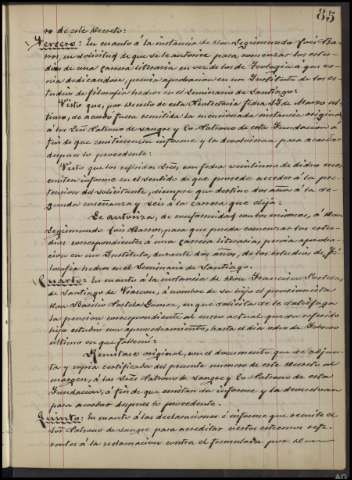 85
ro de este Decreto:
Tercero: En cuanto á la instancia de Don Segismundo Luis Ba-
ron, en solicitud de que se le autorice para comenzar los estu-
dios de una carrera literaria en vez de los de Teologia á que es-
taba dedicado, previa aprobacion en un Instituto de los es-
tudios de filosofia hechos en el Seminario de Santiago:
Visto que, por decreto de esta Rectoria fecha 23 de Marzo úl-
timo, se acordó fuera remitida la mencionada instancia original
á los Sres Patrono de sangre y Co-Patrono de esta Fundacion á
fin de que emitiesen informe y la devolvieran para acordar
despues lo procedente:
Visto que los referidos Sres, con fecha veintiuno de dicho mes,
emiten informe en el sentido de que procede acceder á la pre-
tension del solicitante, siempre que destine dos años á la se-
gunda enseñanza y seis á la carrera que elija:
Se autoriza, de conformidad con los mismos, á Don
Segismundo Luis Baron, para que pueda comenzar los estu-
dios correspondientes á una carrera literaria, previa aproba-
cion en un Instituto, durante dos años, de los estudios de fi-
losofia hechos en el Seminario de Santiago.
Cuarto: En cuanto á la instancia de Don Francisco
de Santiago de, á nombre de su hijo el pensionista
Don, en que solicita se le satisfaga
la pension correspondiente al curso actual que su referido
hijo estudió con aprovechamiento, hasta el dia ocho de Febrero
último en que falleció:
Remítase original, con el documento que se adjun-
ta y copia certificada del presente número de este Decreto al
margen, á los Sres Patrono de sangre y Co-Patrono de esta
Fundacion, á fin de que emitan su informe y la devuelvan
para acordar despues lo procedente.
Quinto: En cuanto á las declaraciones é informe que remite el
Sor Patrono de sangre para acreditar ciertos estremos refe-
rentes á la reclamacion contra el formulada por el